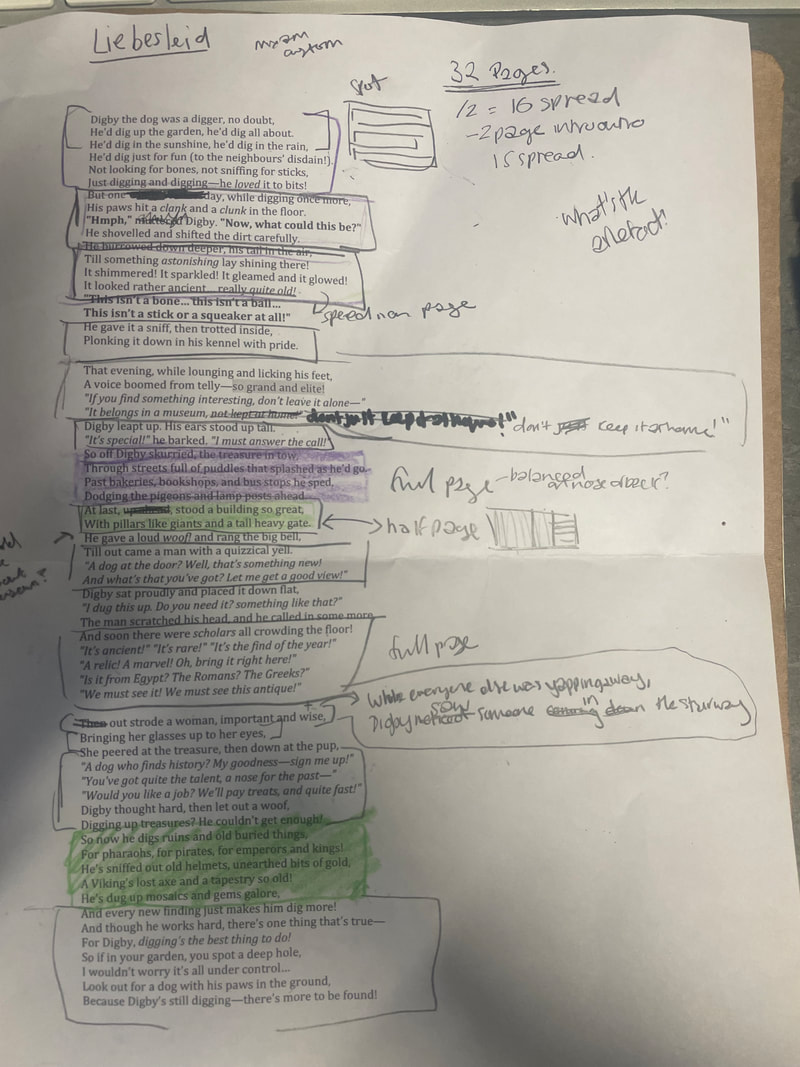 Liebesleid
museum
custom
spot
32 Pages.
/2 = 16 spread
-2 page intro outro
15 spread.
what's the
artefact!
Digby the dog was a digger, no doubt,
He'd dig up the garden, he'd dig all about.
He'd dig in the sunshine, he'd dig in the rain,
He'd dig just for fun (to the neighbours' disdain!).
Not looking for bones, not sniffing for sticks,
Just digging and digging—he loved it to bits!
But one day, while digging once more,
His paws hit a clank and a clunk in the floor.
"Hmph," muttered Digby. "Now, what could this be?"
He shovelled and shifted the dirt carefully.
He burrowed down deeper, his tail in the air,
Till something astonishing lay shining there!
It shimmered! It sparkled! It gleamed and it glowed!
It looked rather ancient... really quite old!
"This isn't a bone... this isn't a ball...
This isn't a stick or a squeaker at all!"
spread on page
He gave it a sniff, then trotted inside,
Plonking it down in his kennel with pride.
That evening, while lounging and licking his feet,
A voice boomed from telly—so grand and elite!
"If you find something interesting, don't leave it alone—"
"It belongs in a museum, not kept at home! don't just keep it at home!" don't just keep it at home!"
Digby leapt up. His ears stood up tall.
"It's special!" he barked. "I must answer the call!
So off Digby skurried, the treasure in tow,
Through streets full of puddles that splashed as he'd go.
Past bakeries, bookshops, and bus stops he sped,
Dodging the pigeons and lamp posts ahead.
full page - balanced
at nose or back?
At last, up ahead, stood a building so great,
With pillars like giants and a tall heavy gate.
half page
He gave a loud woof! and rang the big bell,
Till out came a man with a quizzical yell.
"A dog at the door? Well, that's something new!
And what's that you've got? Let me get a good view!"
Digby sat proudly and placed it down flat,
"I dug this up. Do you need it? something like that?"
The man scratched his head, and he called in some more,
And soon there were scholars all crowding the floor!
full page
"It's ancient!" "It's rare!" "It's the find of the year!"
"A relic! A marvel! Oh, bring it right here!"
"Is it from Egypt? The Romans? The Greeks?"
"We must see it! We must see this antique!"
While everyone else was yapping away,
Digby noticed someone coming in down the stairway
Then out strode a woman, important and wise,
Bringing her glasses up to her eyes,
She peered at the treasure, then down at the pup,
"A dog who finds history? My goodness—sign me up!"
"You've got quite the talent, a nose for the past—"
"Would you like a job? We'll pay treats, and quite fast!"
Digby thought hard, then let out a woof,
Digging up treasures? He couldn't get enough!
So now he digs ruins and old buried things,
For pharaohs, for pirates, for emperors and kings!
He's sniffed out old helmets, unearthed bits of gold,
A Viking's lost axe and a tapestry so old!
He's dug up mosaics and gems galore,
And every new finding just makes him dig more!
And though he works hard, there's one thing that's true—
For Digby, digging's the best thing to do!
So if in your garden, you spot a deep hole,
I wouldn't worry it's all under control...
Look out for a dog with his paws in the ground,
Because Digby's still digging—there's more to be found!